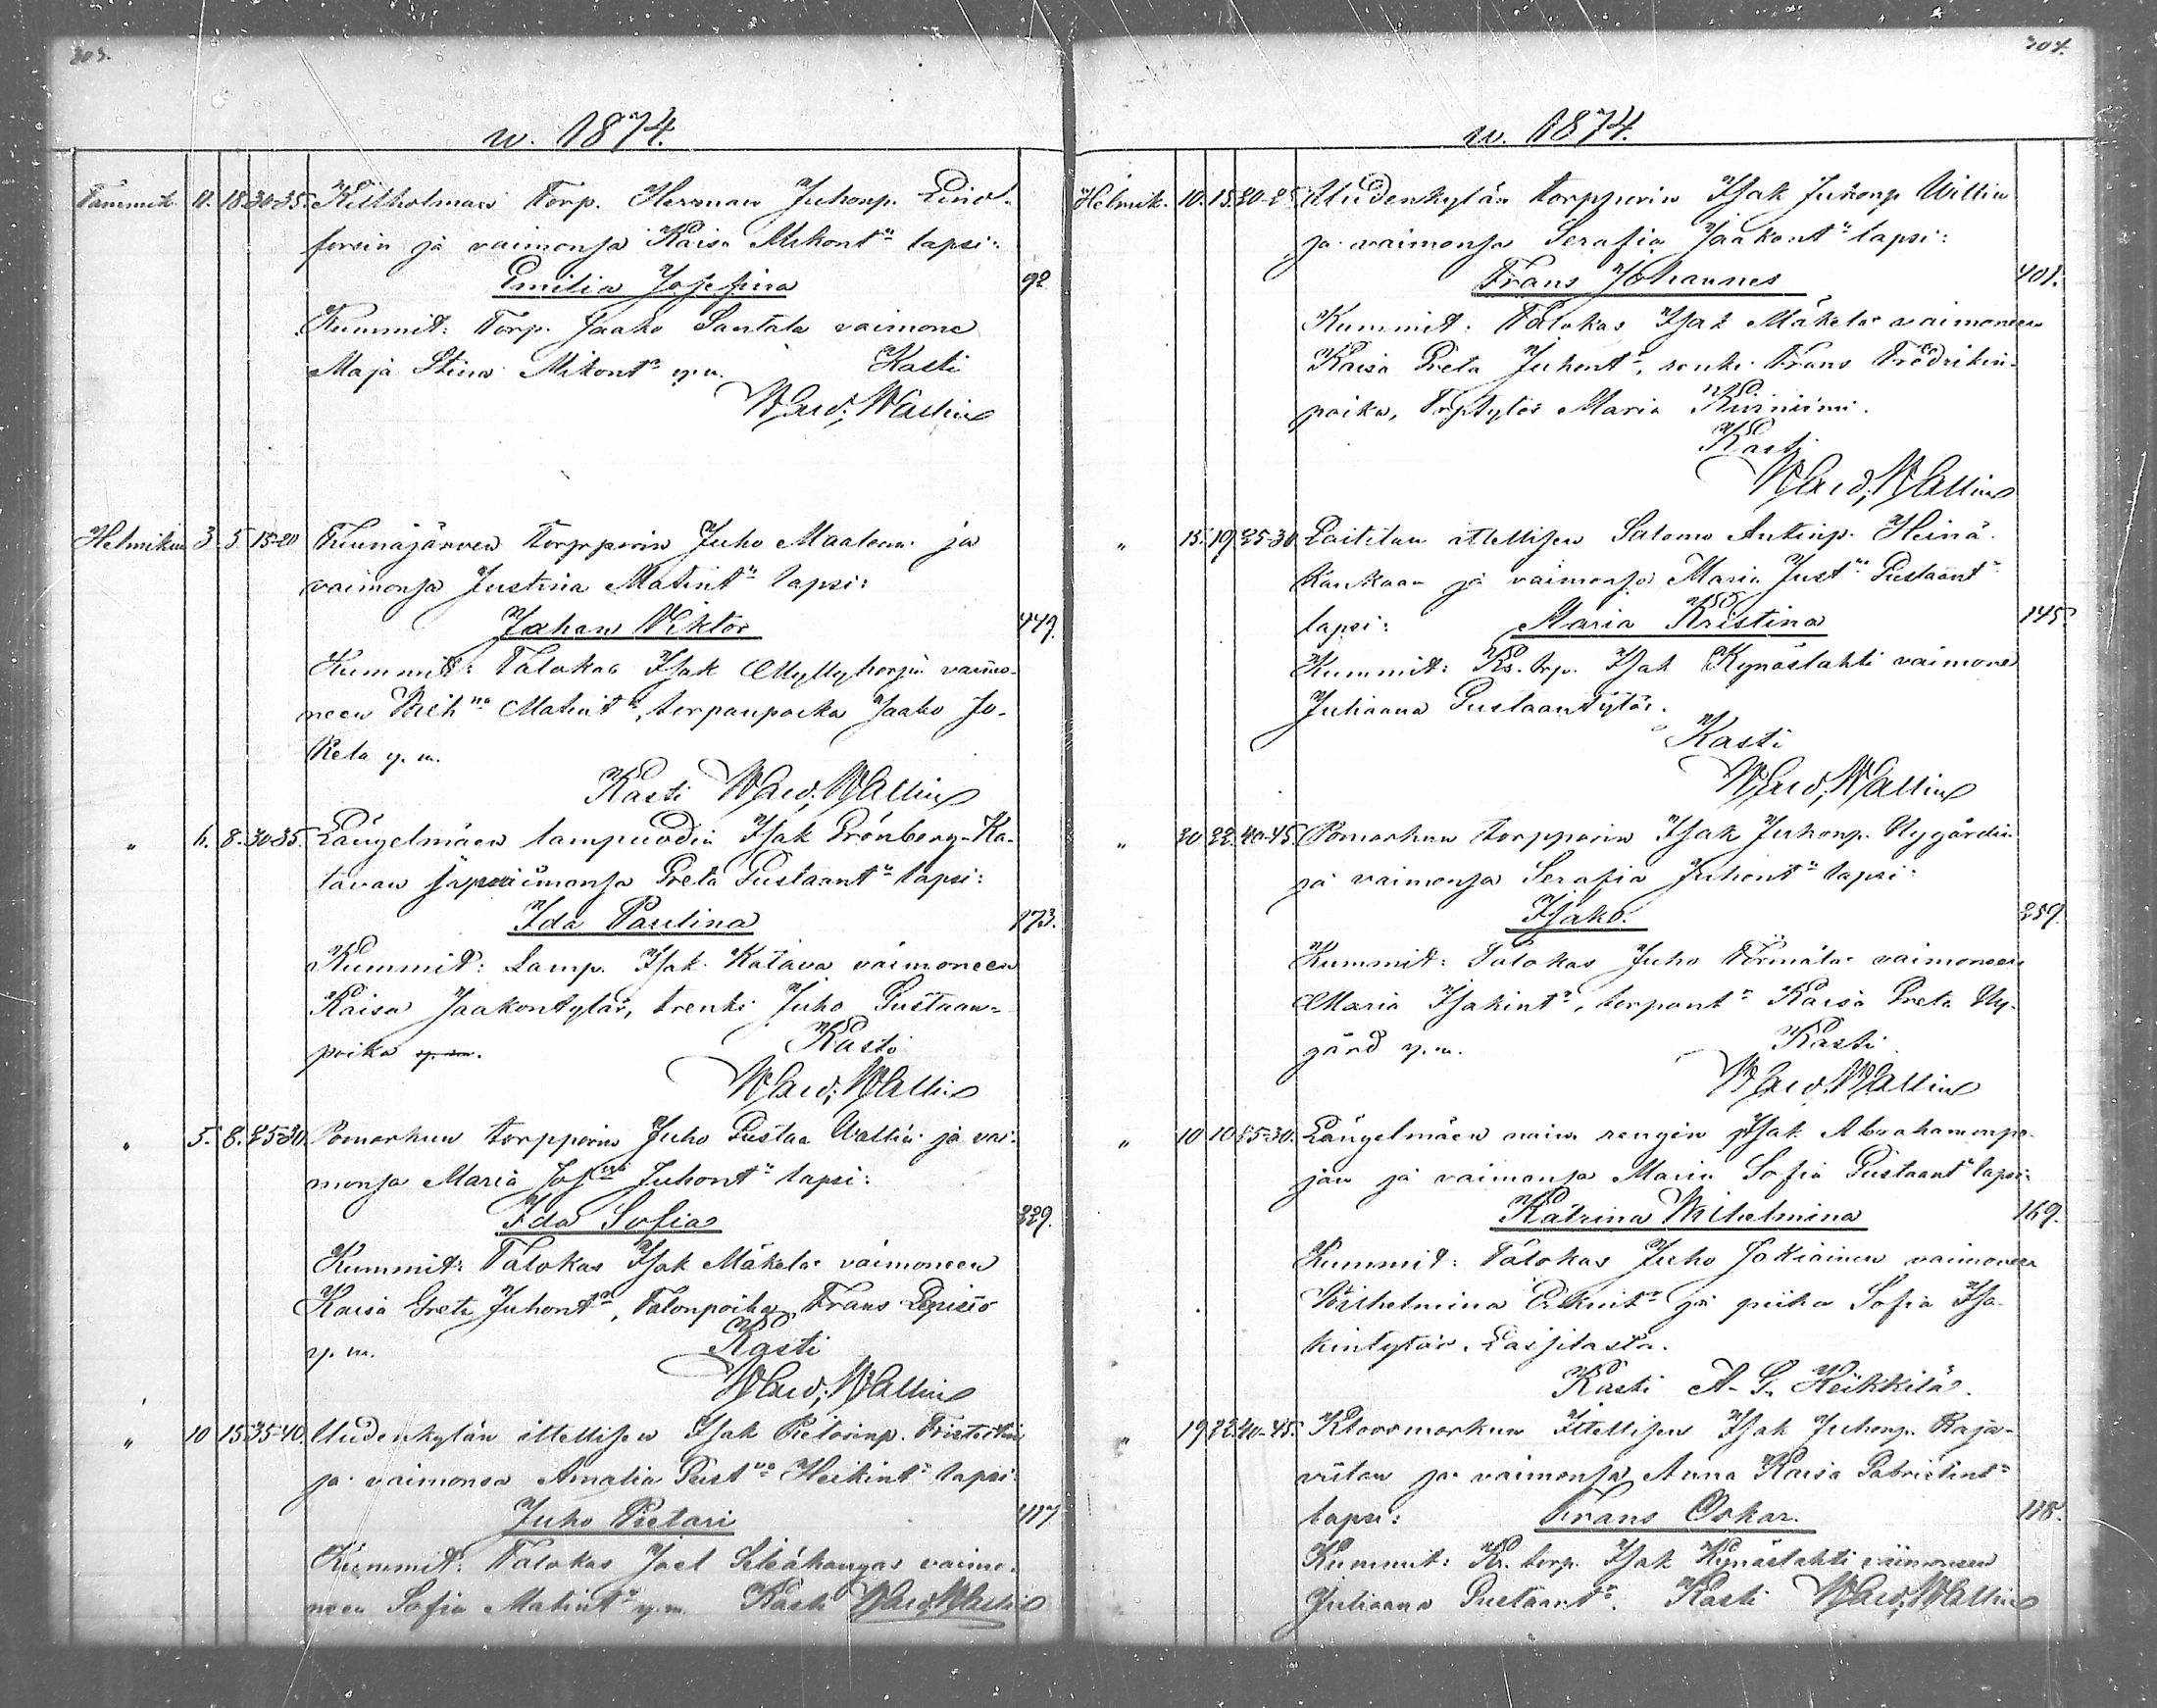 303.
w. 1874.
Tammik. 11. 18. 30-35. Kellholman Torp. Herman Juhonp. Lind-
forsin ja vaimonsa Kaisa Mikont:r lapsi:
Emilia Josefina 92
Kummit: Torp. Jaako Santala vaimone
Maja Stina Mikont:r y.m. Kasti
Wald. Wallin
Helmikuu 3. 5. 15-20 torpparin Juho ja
vaimonsa Justina Matint:r lapsi:
Johan Viktor 449.
Kummit: Talokas Isak Myllyharju vaimo-
neen Matint:r, torpanpoika Jaako Jo-
kela y.m.
Kasti Wald. Wallin
" 6. 8. 30-35. Längelmäen lampuodin Isak Grönberg-Ka-
tavan ja vaimonsa Greta Gustaant:r lapsi:
Ida Paulina 173.
Kummit: Lamp. Isak Katava vaimoneen
Kaisa Jaakontytär, trenki Juho Gustaan-
poika y.m. Kasti
Wald. Wallin
" 5. 8. 25-30. Pomarkun torpparin Juho Gustaa Wallin ja vai-
monsa Maria Jos:na Juhont:r lapsi:
Ida Sofia 229.
Kummit: Talokas Isak Mäkelä vaimoneen
Kaisa Greta Juhont:r, Talonpoika Frans Lepistö
y.m. Kasti
Wald. Wallin
" 10 15 35-40. Uudenkylän ittellisen Isak Pietarinp.
ja vaimonsa Amalia Gust:va Heikint:r lapsi
Juho Pietari 417
Kummit: Talokas Joel Siltakangas vaimo-
neen Sofia Matint:r y.m. Kasti Wald. Wallin
304.
w. 1874.
Helmik. 10. 15. 20-25 Uudenkylän torpparin Isak Juhonp. Willin
ja vaimonsa Serafia Jaakont:r lapsi:
Frans Johannes 401.
Kummit: Talokas Isak Mäkelä vaimoneen
Kaisa Greta Juhont:r, renki Frans Fredrikin-
poika, Torptytär Maria Kuiniemi.
Kasti
Wald. Wallin
" 15. 19. 25-30 Laitilan ittellisen Salomo Antinp. Heinä-
kankaan ja vaimonsa Maria Just:na Gustaant:r
lapsi: Maria Kristina 145.
Kummit: Kr. trp. Isak Kynäslahti vaimone
Juliaana Gustaantytär.
Kasti
Wald. Wallin
" 20 22. 40-45. Pomarkun torpparin Isak Juhonp. Nygårdin
ja vaimonsa Serafia Juhont:r lapsi:
Isako. 259.
Kummit: Talokas Juho Törmälä vaimoneen
Maria Isakint:r, torpant:r Kaisa Greta Ny-
gård y.m. Kasti
Wald. Wallin
" 10 10 25-30. Längelmäen naine rengin Isak Abrahamin po-
jan ja vaimonsa Maria Sofia Gustaant:r lapsi:
Katrina Wilhelmina 169.
Kummit: Talokas Juho Jokiainen vaimoneen
Wilhelmina Erkint:r ja piika Sofia Isa-
kintytär.
Kasti A. G. Heikkilä.
" 19 22. 40-45. Kloosmarkun Ittellisen Isak Juhonp. Raja-
viitan ja vaimonsa Anna Kaisa Gabrielint:r
lapsi: Frans Oskar. 118.
Kummit: Kr. torp. Isak Kynäslahti vaimoneen
Juliaana Gustaant:r. Kasti Wald. Wallin